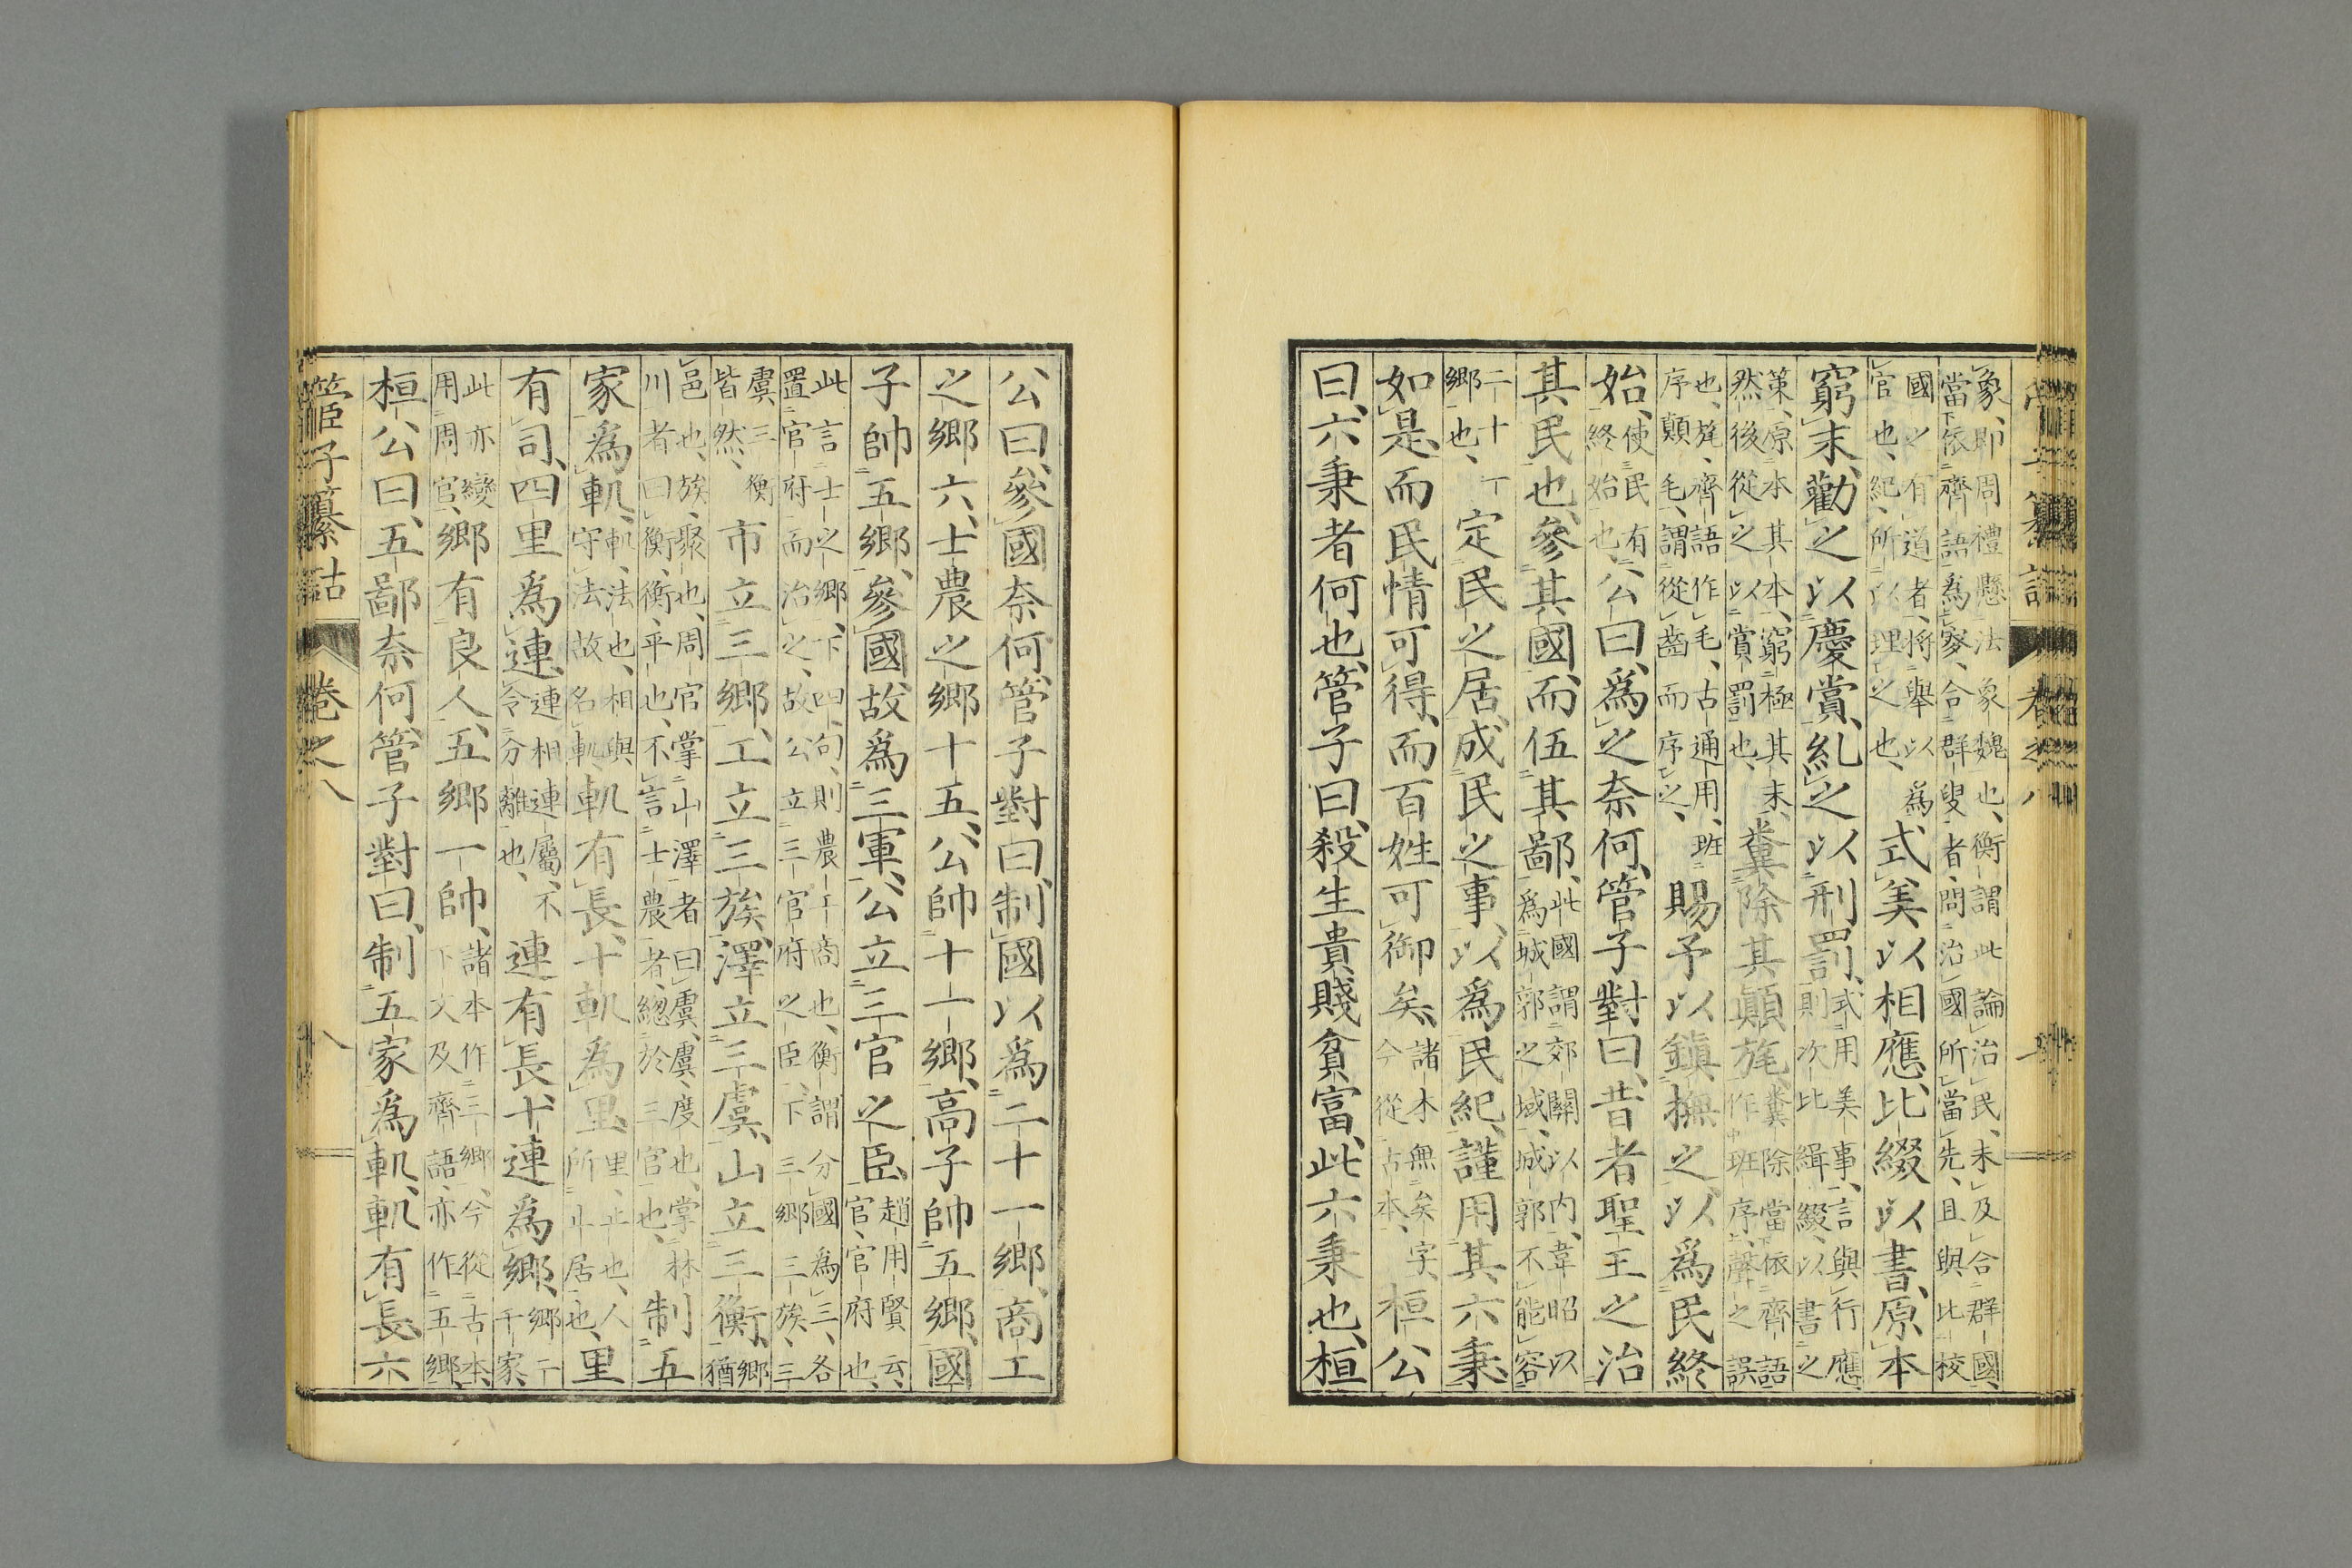 象、即周禮懸法象魏也、衡謂此論治民、未及合群國、
當依齊語爲察、合群叟者、問治國所當先、且與比校
國之有道者、將舉以爲
官也、紀、所以理之也、
式、美以相應、比綴以書、原本
窮末、勸之以慶賞、糺之以刑罰、
式用美事、言與行應、
則次比緝綴、以書之
策、原本其本、窮極其末、
然後從之以賞罰也、
糞除其顚旄、
糞除當依齊語
作班序、聲之誤
也、旄、齊語作毛、古通用、班
序顚毛、謂從齒而序之、
賜予以鎮撫之、以爲民終
始、
使民有
終始也、
公曰、爲之奈何、管子對曰、昔者聖王之治
其民也、參其國、而伍其鄙、
此國謂郊關以内、韋昭以
爲城郭之域、城郭不能容
二十一
鄉也、
定民之居、成民之事、以爲民紀、謹用其六秉、
如是、而民情可得、而百姓可御矣、
諸本無矣字、
今從古本、
桓公
曰、六秉者何也、管子曰、殺生貴賤貧富、此六秉也、桓
公曰、參國奈何、管子對曰、制國以爲二十一鄉、商工
之鄉六、士農之鄉十五、公帥十一鄉、高子帥五鄉、國
子帥五鄉、參國、故爲三軍、公立三官之臣、
趙用賢云、
官、官府也、
此言士之鄉、下四句、則農工商也、衡謂分國爲三、各
置官府而治之、故公立三官府之臣、下三鄉三族、三
虞、三衡
皆然、
市立三鄉、工立三族、澤立三虞、山立三衡、
鄉猶
邑也、族、聚也、周官掌山澤者曰虞、虞、度也、掌林
川者曰衡、衡、平也、不言士農者、總於三官也、
制五
家爲軌、
軌、法也、相與
守法、故名軌
軌有長、十軌爲里、
里、止也、人
所止居也、
里
有司、四里爲連、
連相連屬、不
令分離也、
連有長、十連爲鄉、
鄉二
千家、
此亦變
用周官、
鄉有良人、五鄉一帥、
諸本作三鄉、今從古本、
下文及齊語、亦作五鄉、
桓公曰、五鄙奈何、管子對曰、制五家爲軌、軌有長、六
管子纂詁 卷之八 八